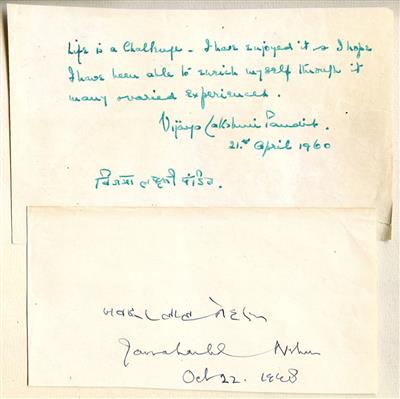 Life is a Challenge - I have enjoyed it & I hope
I have been able to enrich myself through it
many & varied experiences.
Vijaya Lakshmi Pandit.
21st April 1960
विजया लक्ष्मी पंडित.
जवाहरलाल नेहरू
Jawaharlal Nehru
Oct 22. 1948